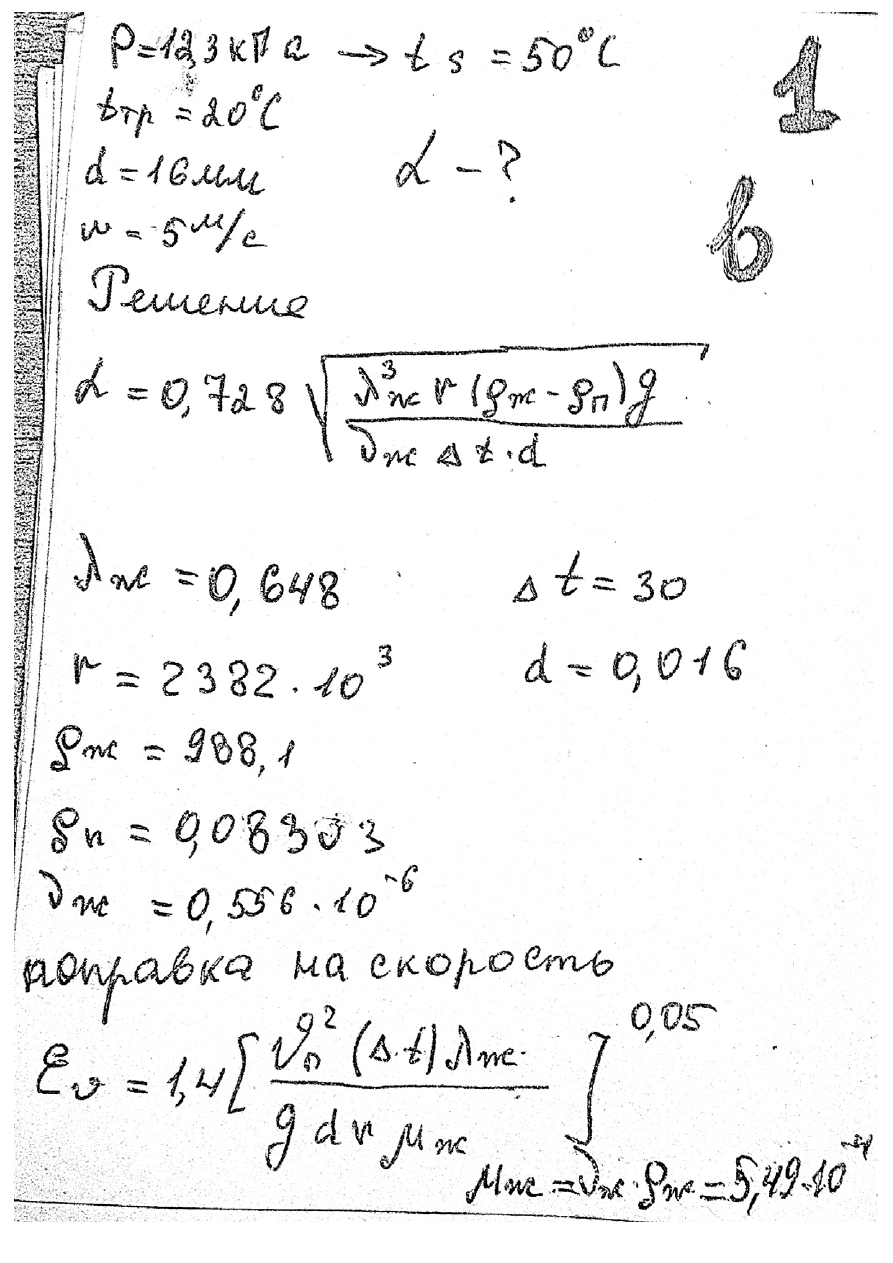 P=12,3 кПа → t s = 50°C
tтр = 20°C
d = 16 мм α - ?
w = 5 м/с
1
в
Решение
α = 0,728 √ λ³ж r (ρж - ρп) g / νж Δt · d
λж = 0,648 Δt = 30
r = 2382 · 10³ d = 0,016
ρж = 988,1
ρп = 0,08303
νж = 0,556 · 10⁻⁶
поправка на скорость
Ev = 1,4 [ v²п (Δt) λж / g d r μж ]^0,05
μж = νж · ρж = 5,49·10⁻⁴